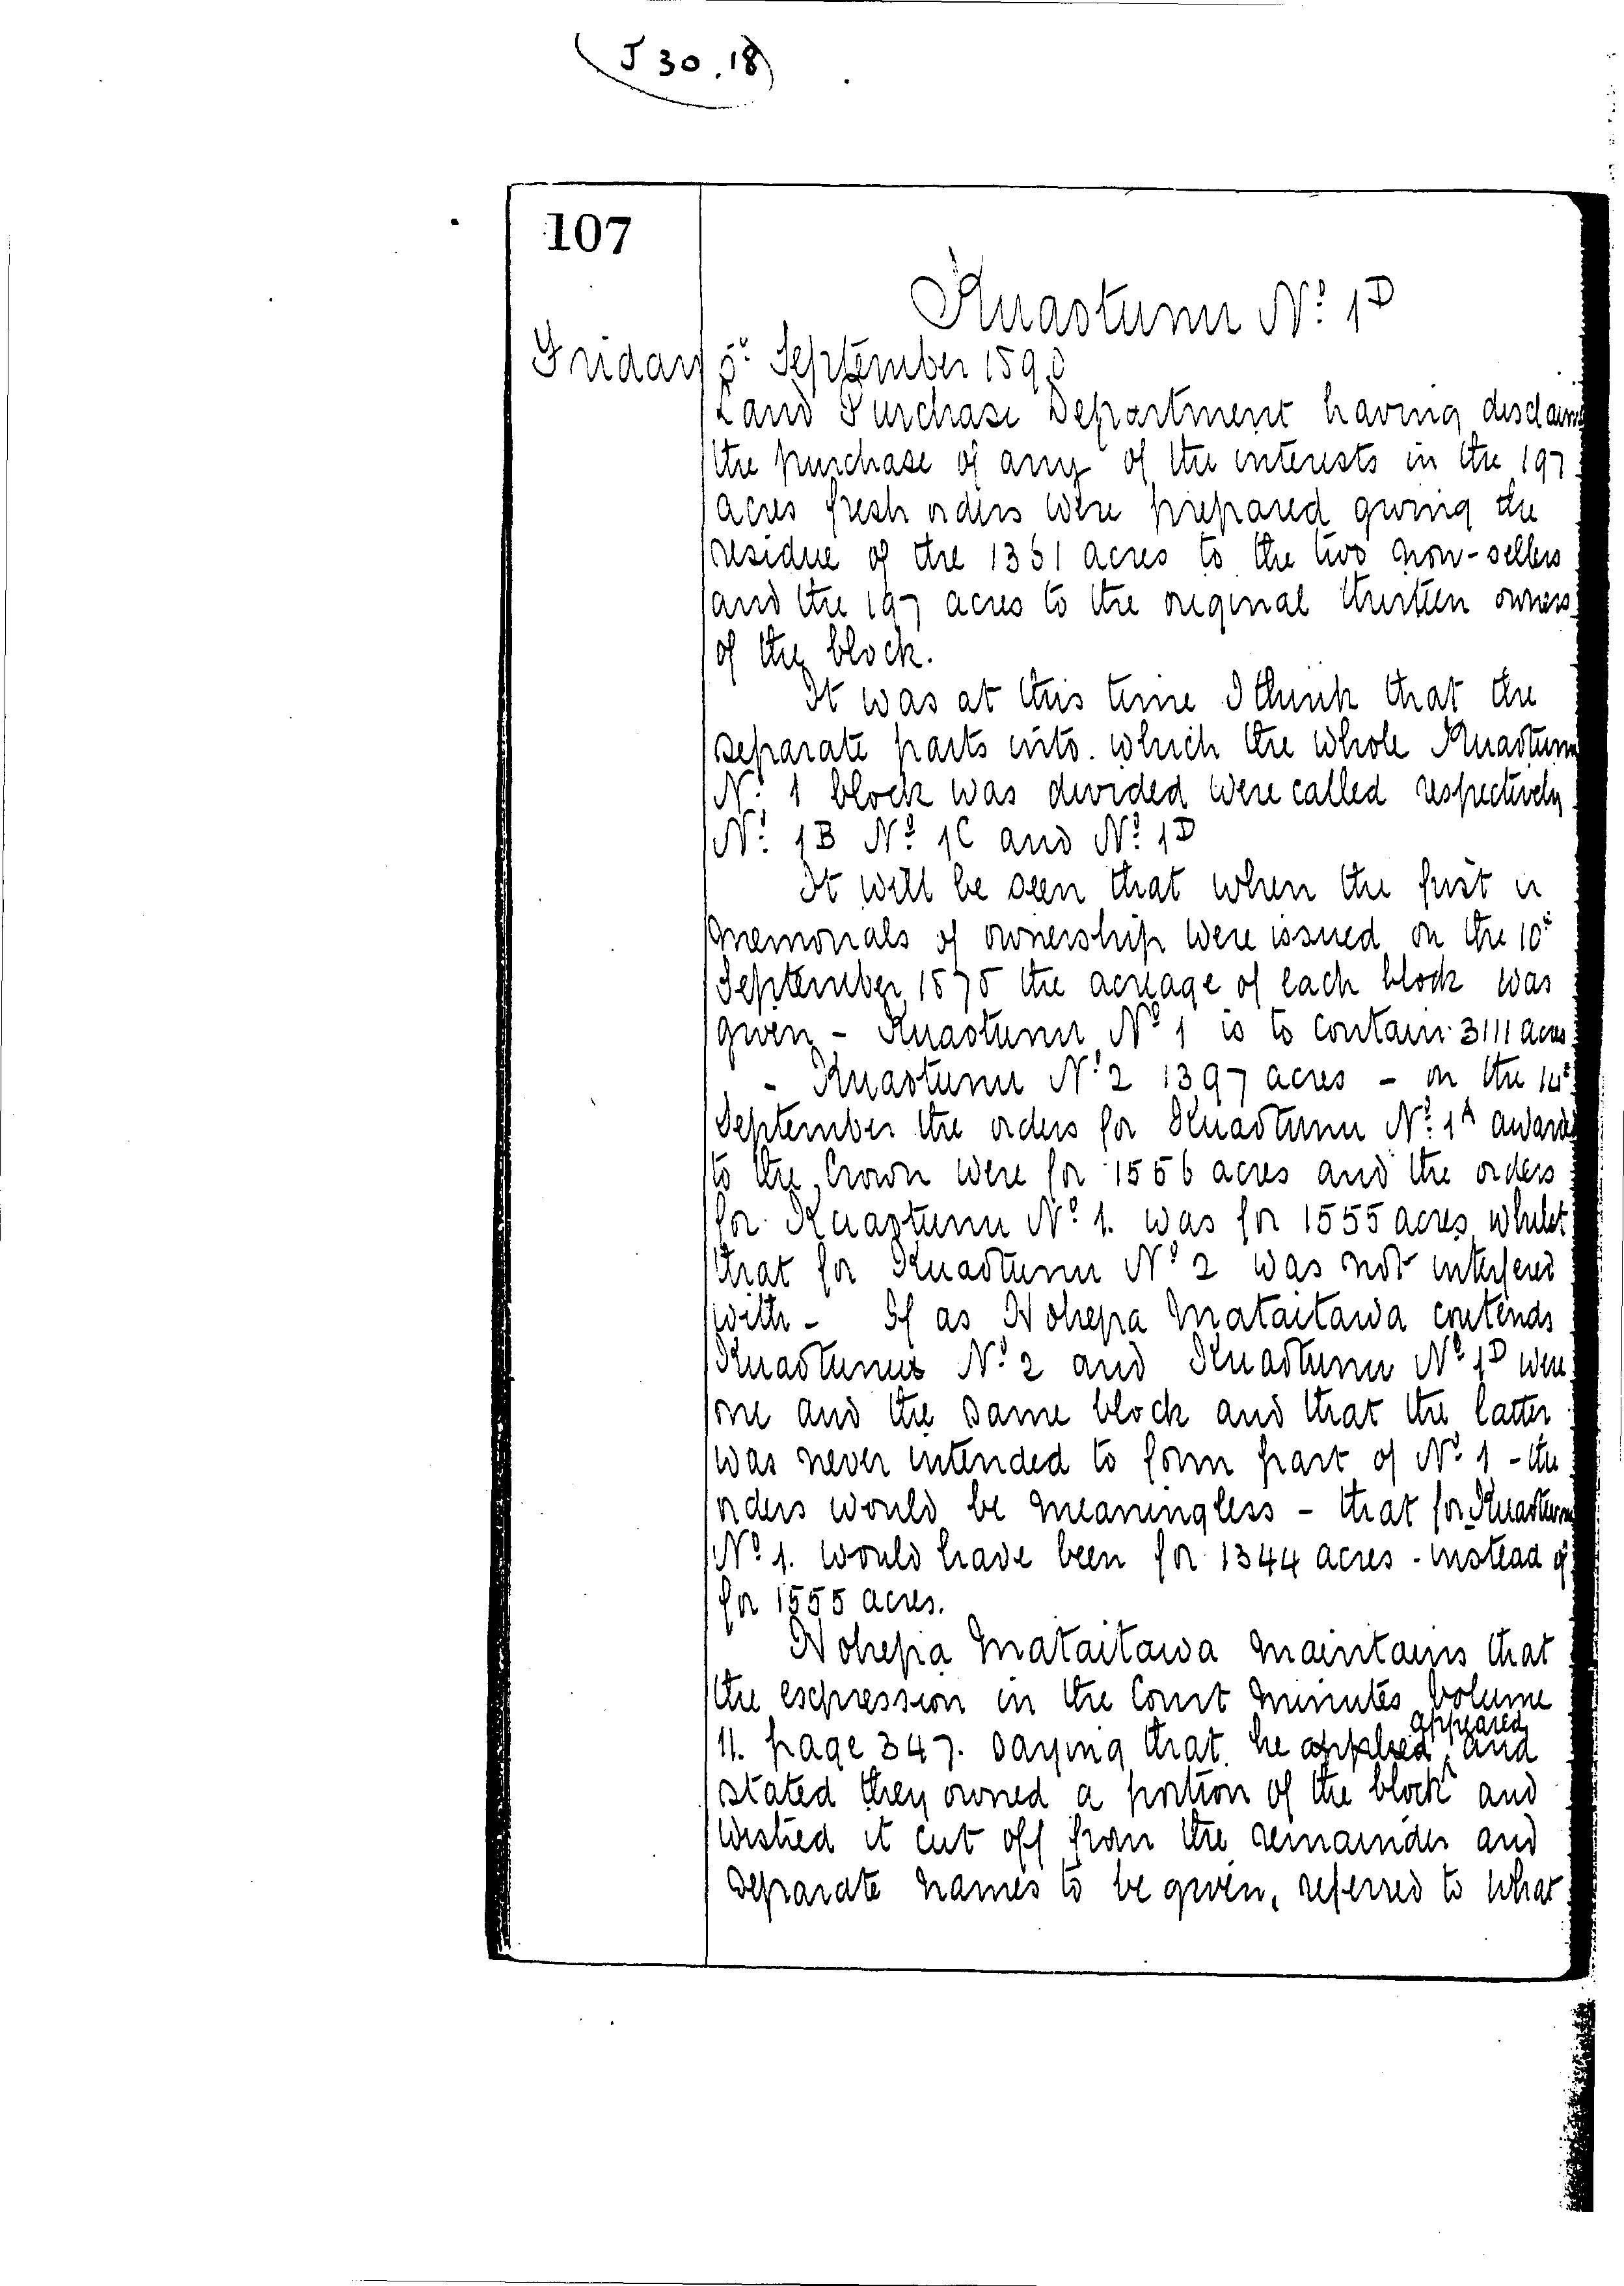 J 30.18
107
Kuaotunu No. 1D
Friday 5th September 1890
Land Purchase Department having disclaim
the purchase of any of the interests in the 197
acres fresh orders were prepared giving the
residue of the 1361 acres to the two non-sellers
and the 197 acres to the original thirteen owners
of the block.
It was at this time I think that the
separate parts into. which the whole Kuaotunu
No. 1 block was divided were called respectively
No. 1B No. 1C and No. 1D
It will be seen that when the first
memorials of ownership were issued on the 10th
September 1878 the acreage of each block was
given - Kuaotunu No. 1 is to contain 3111 acres
- Kuaotunu No. 2 1397 acres - on the 14th
September the orders for Kuaotunu No. 1A award
to the Crown were for 1556 acres and the orders
for Kuaotunu No. 1. was for 1555 acres whilst
that for Kuaotunu No. 2 was not interfered
with - If as Nohepa Mataitawa contends
Kuaotunu No. 2 and Kuaotunu No. 1D were
one and the same block and that the latter
was never intended to form part of No. 1 - the
orders would be meaningless - that for Kuaotunu
No. 1. would have been for 1344 acres - instead of
for 1555 acres.
Nohepa Mataitawa maintains that
the expression in the Court minutes Volume
11. page 347. saying that he applied appeared and
stated they owned a portion of the block and
wished it cut off from the remainder and
separate names to be given, referred to what